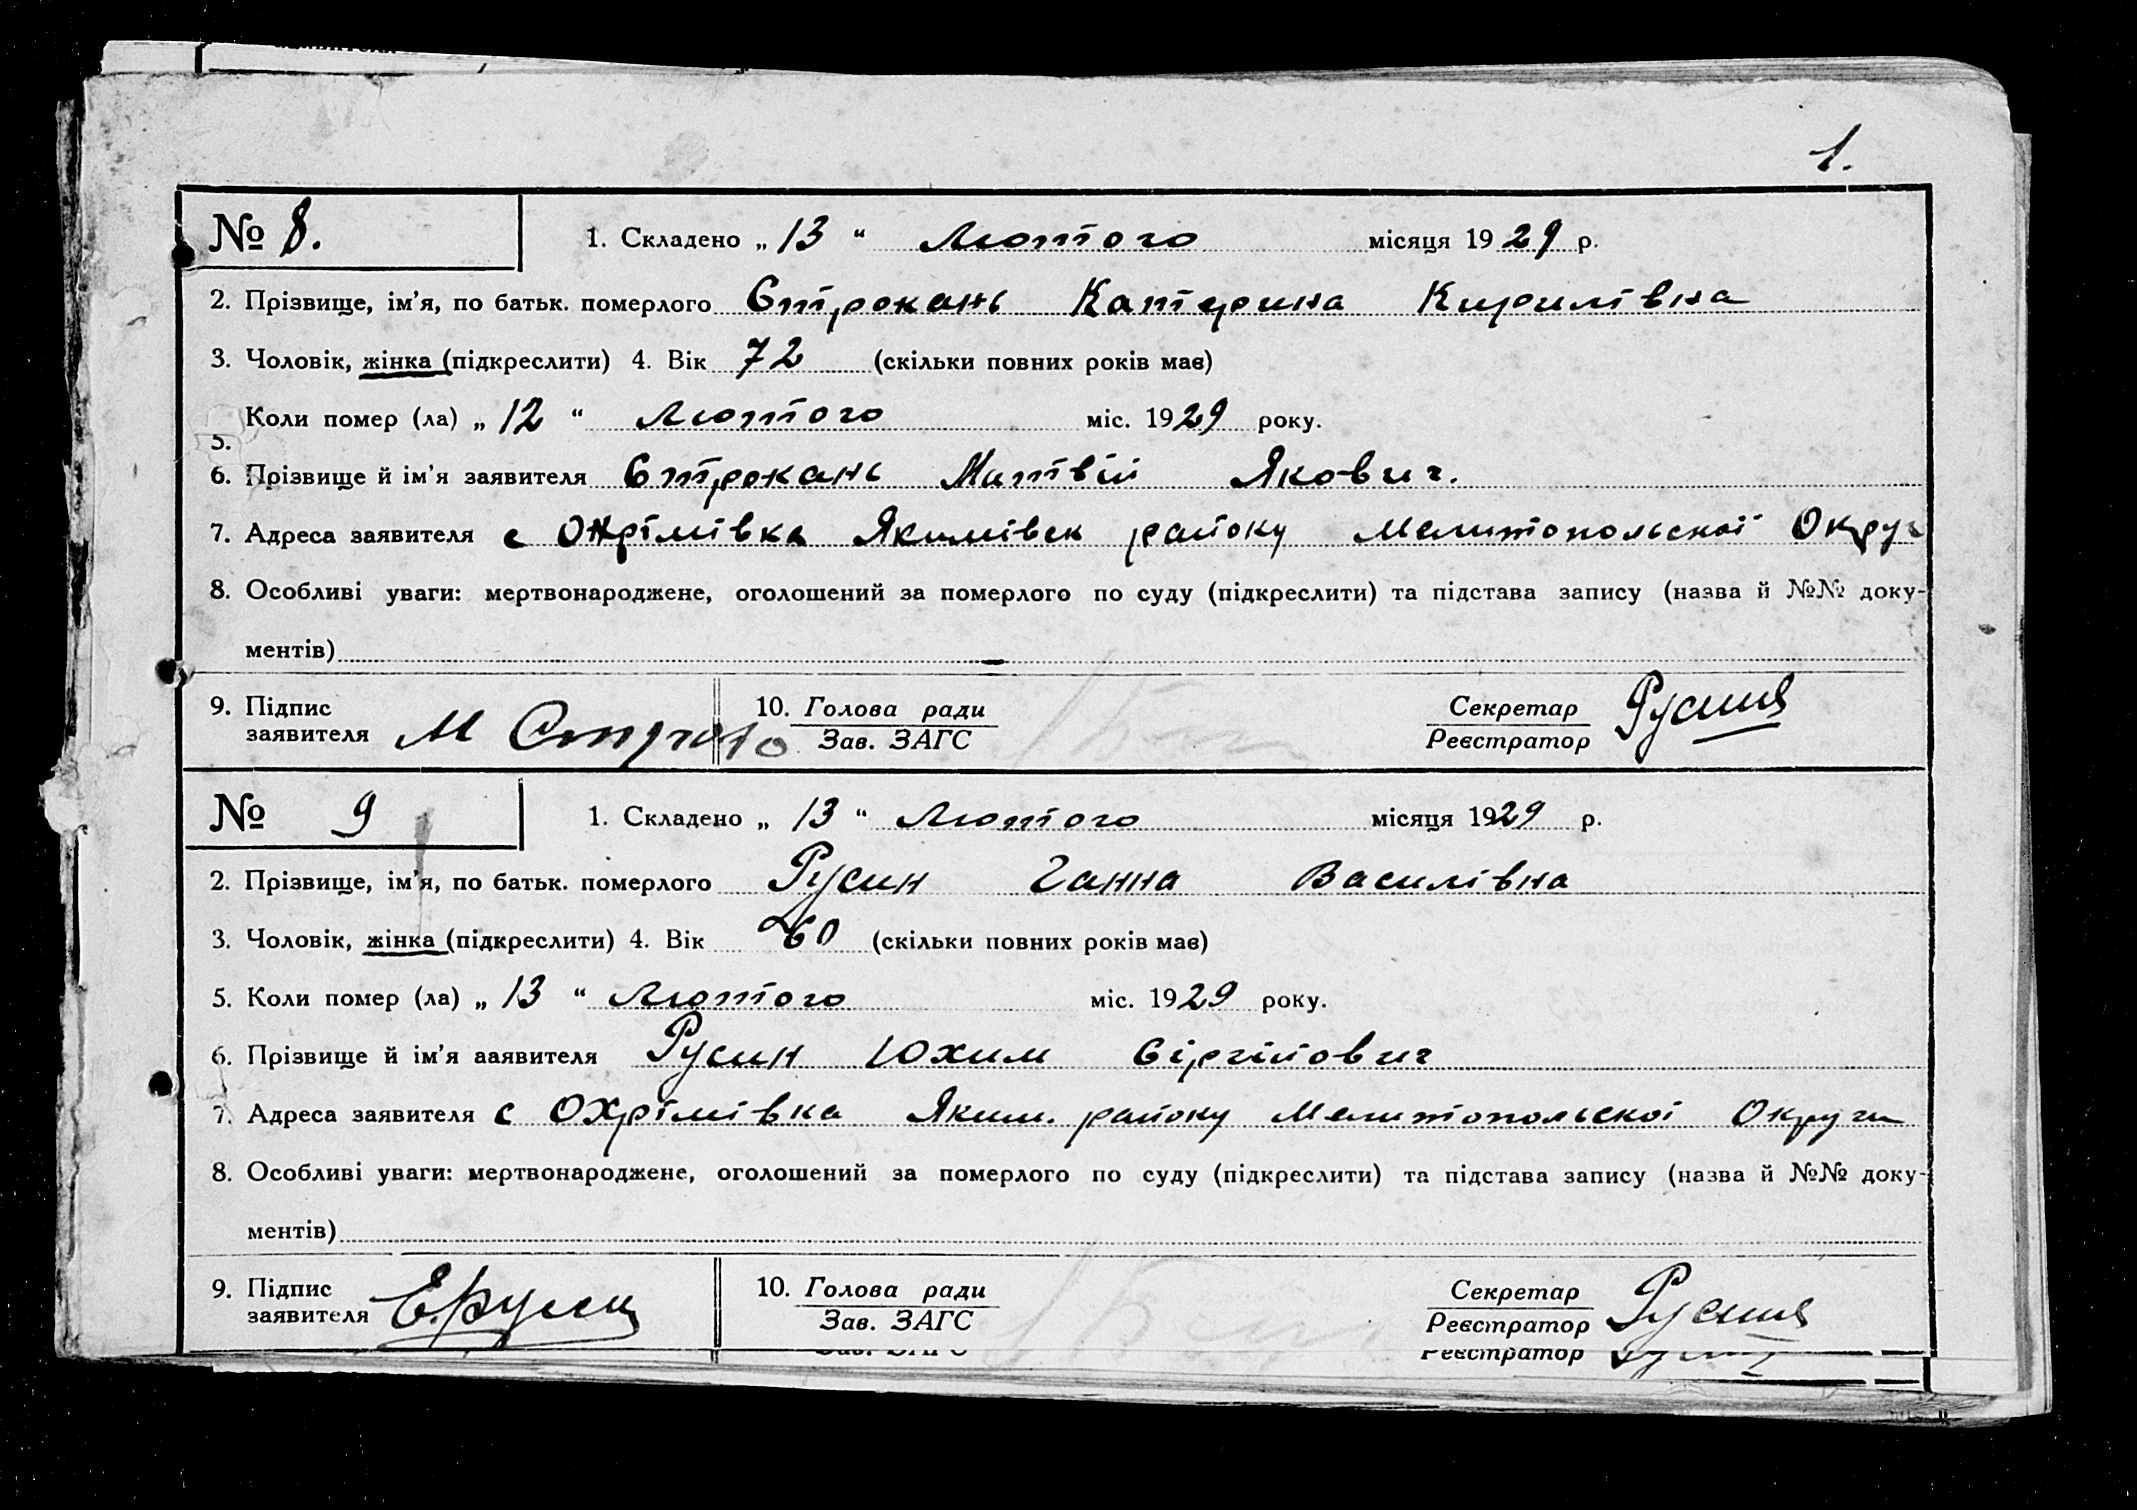 1.
№ 8. 1. Складено „ 13 “ Лютого місяця 1929 р.
2. Прізвище, ім’я, по батьк. померлого Строкань Катерина Кирилівна
3. Чоловік, жінка (підкреслити) 4. Вік 72 (скільки повних років має)
5. Коли помер (ла) „ 12 “ Лютого міс. 1929 року.
6. Прізвище й ім’я заявителя Строкань Матвій Якович.
7. Адреса заявителя с Охрімівка Якимівск району Мелитопольскої Округ
8. Особливі уваги: мертвонароджене, оголошений за померлого по суду (підкреслити) та підстава запису (назва й №№ доку-
ментів)
9. Підпис 10. Голова ради Секретар
заявителя М Зав. ЗАГС Реєстратор
№ 9 1. Складено „ 13 “ Лютого місяця 1929 р.
2. Прізвище, ім’я, по батьк. померлого Русин Ганна Василівна
3. Чоловік, жінка (підкреслити) 4. Вік 60 (скільки повних років має)
5. Коли помер (ла) „ 13 “ Лютого міс. 1929 року.
6. Прізвище й ім’я ааявителя Русин Юхим Сіргійович
7. Адреса заявителя с Охрімівка Яким. району Мелитопольскої Округи
8. Особливі уваги: мертвонароджене, оголошений за померлого по суду (підкреслити) та підстава запису (назва й №№ доку-
ментів)
9. Підпис 10. Голова ради Секретар
заявителя Зав. ЗАГС Реєстратор
Реєстратор